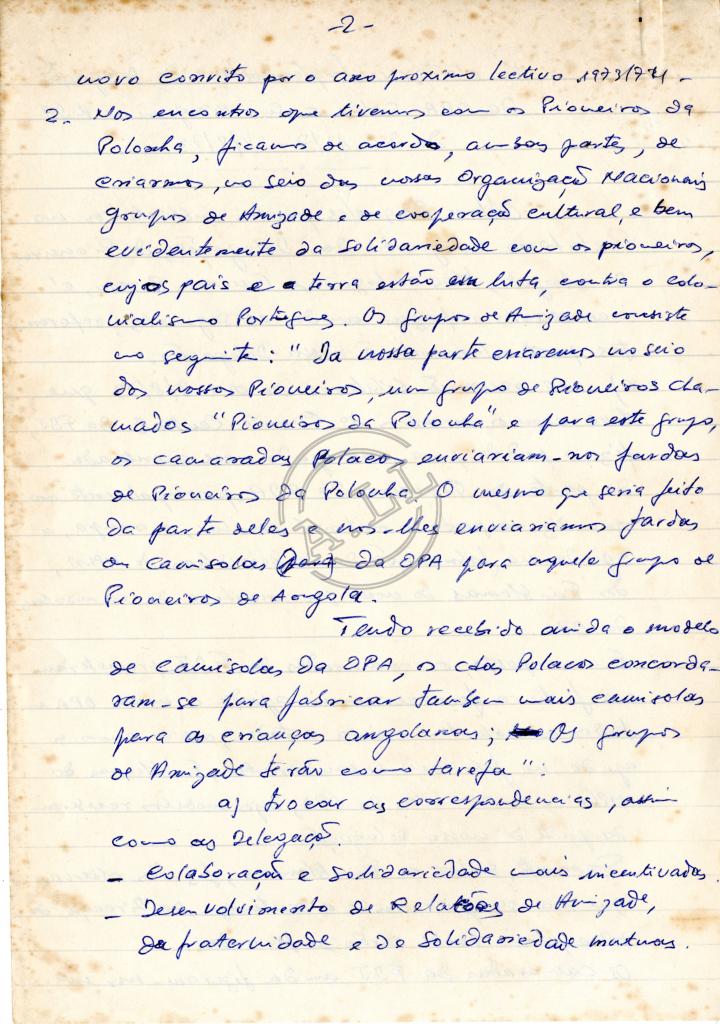 -2-
novo convito por o ano proximo lectivo 1973/74-
2- Nos encontros que tivemos com os Pioneiros da
Polonha, ficamos de acordo, ambas partes, de
criarmos, no seio das nossas Organizaçã Nacionais
grupos de Amizade e de cooperaçã cultural, e bem
evidentemente da Solidariedade com os pioneiros,
cujos pais e a terra estão em luta, contra o colo-
nialismo Portugues. Os grupos de Amizade consiste
no seguinte: "Da nossa parte criaremos no seio
dos nossos Pioneiros, um grupo de Pioneiros cha-
mados "Pioneiros da Polonha" e para este grupo,
os camaradas Polacos enviariam-nos fardas
de Pioneiros da Polonha. O mesmo que seria feito
da parte deles e nos-lhes enviariamos fardas
ou camisolas (para) da OPA para aquele grupo de
Pioneiros de Angola.
Tendo recebido ainda o modelo
de camisolas da OPA, os cdas Polacos concorda-
ram-se para fabricar tambem mais camisolas
para as crianças angolanas; Os grupos
de Amizade terão como tarefa":
a) trocar as correspondencias, assim
como as Delegaçõ.
- Colaboração e Solidariedade mais incentivadas.
- Desenvolvimento de Relações de Amizade,
da fraternidade e de Solidariedade mutuas.
A.LL